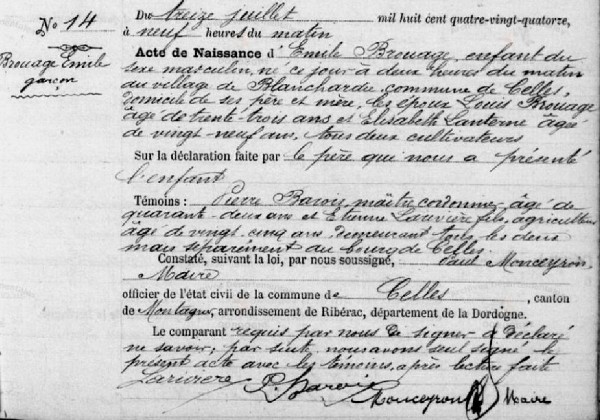 No 14
Brouage Emile
garçon
Du treize juillet mil huit cent quatre-vingt-quatorze,
à neuf heures du matin
Acte de Naissance d'Emile Brouage, enfant du
sexe masculin, né ce jour à deux heures du matin
au village de Blanchardie, commune de Celles,
domicile de ses père et mère, les époux Louis Brouage
âgé de trente trois ans et Elisabeth Lanterne âgée
de vingt-neuf ans, tous deux cultivateurs
Sur la déclaration faite par le père qui nous a présenté
l'enfant
Témoins : Pierre Barois, maître cordonnier âgé de
quarante-deux ans et Etienne Larivière fils, agriculteur
âgé de vingt cinq ans demeurant tous les deux
mais séparément au bourg de Celles
Constaté, suivant la loi, par nous soussigné, Paul Monceyron,
Maire
officier de l'état civil de la commune de Celles, canton
de Montagrier, arrondissement de Ribérac, département de la Dordogne.
Le comparant requis par nous de signer a déclaré
ne savoir; par suite nous avons seul signé le
présent acte avec les témoins, après lecture faite
Larivière P. Barois Monceyron Maire